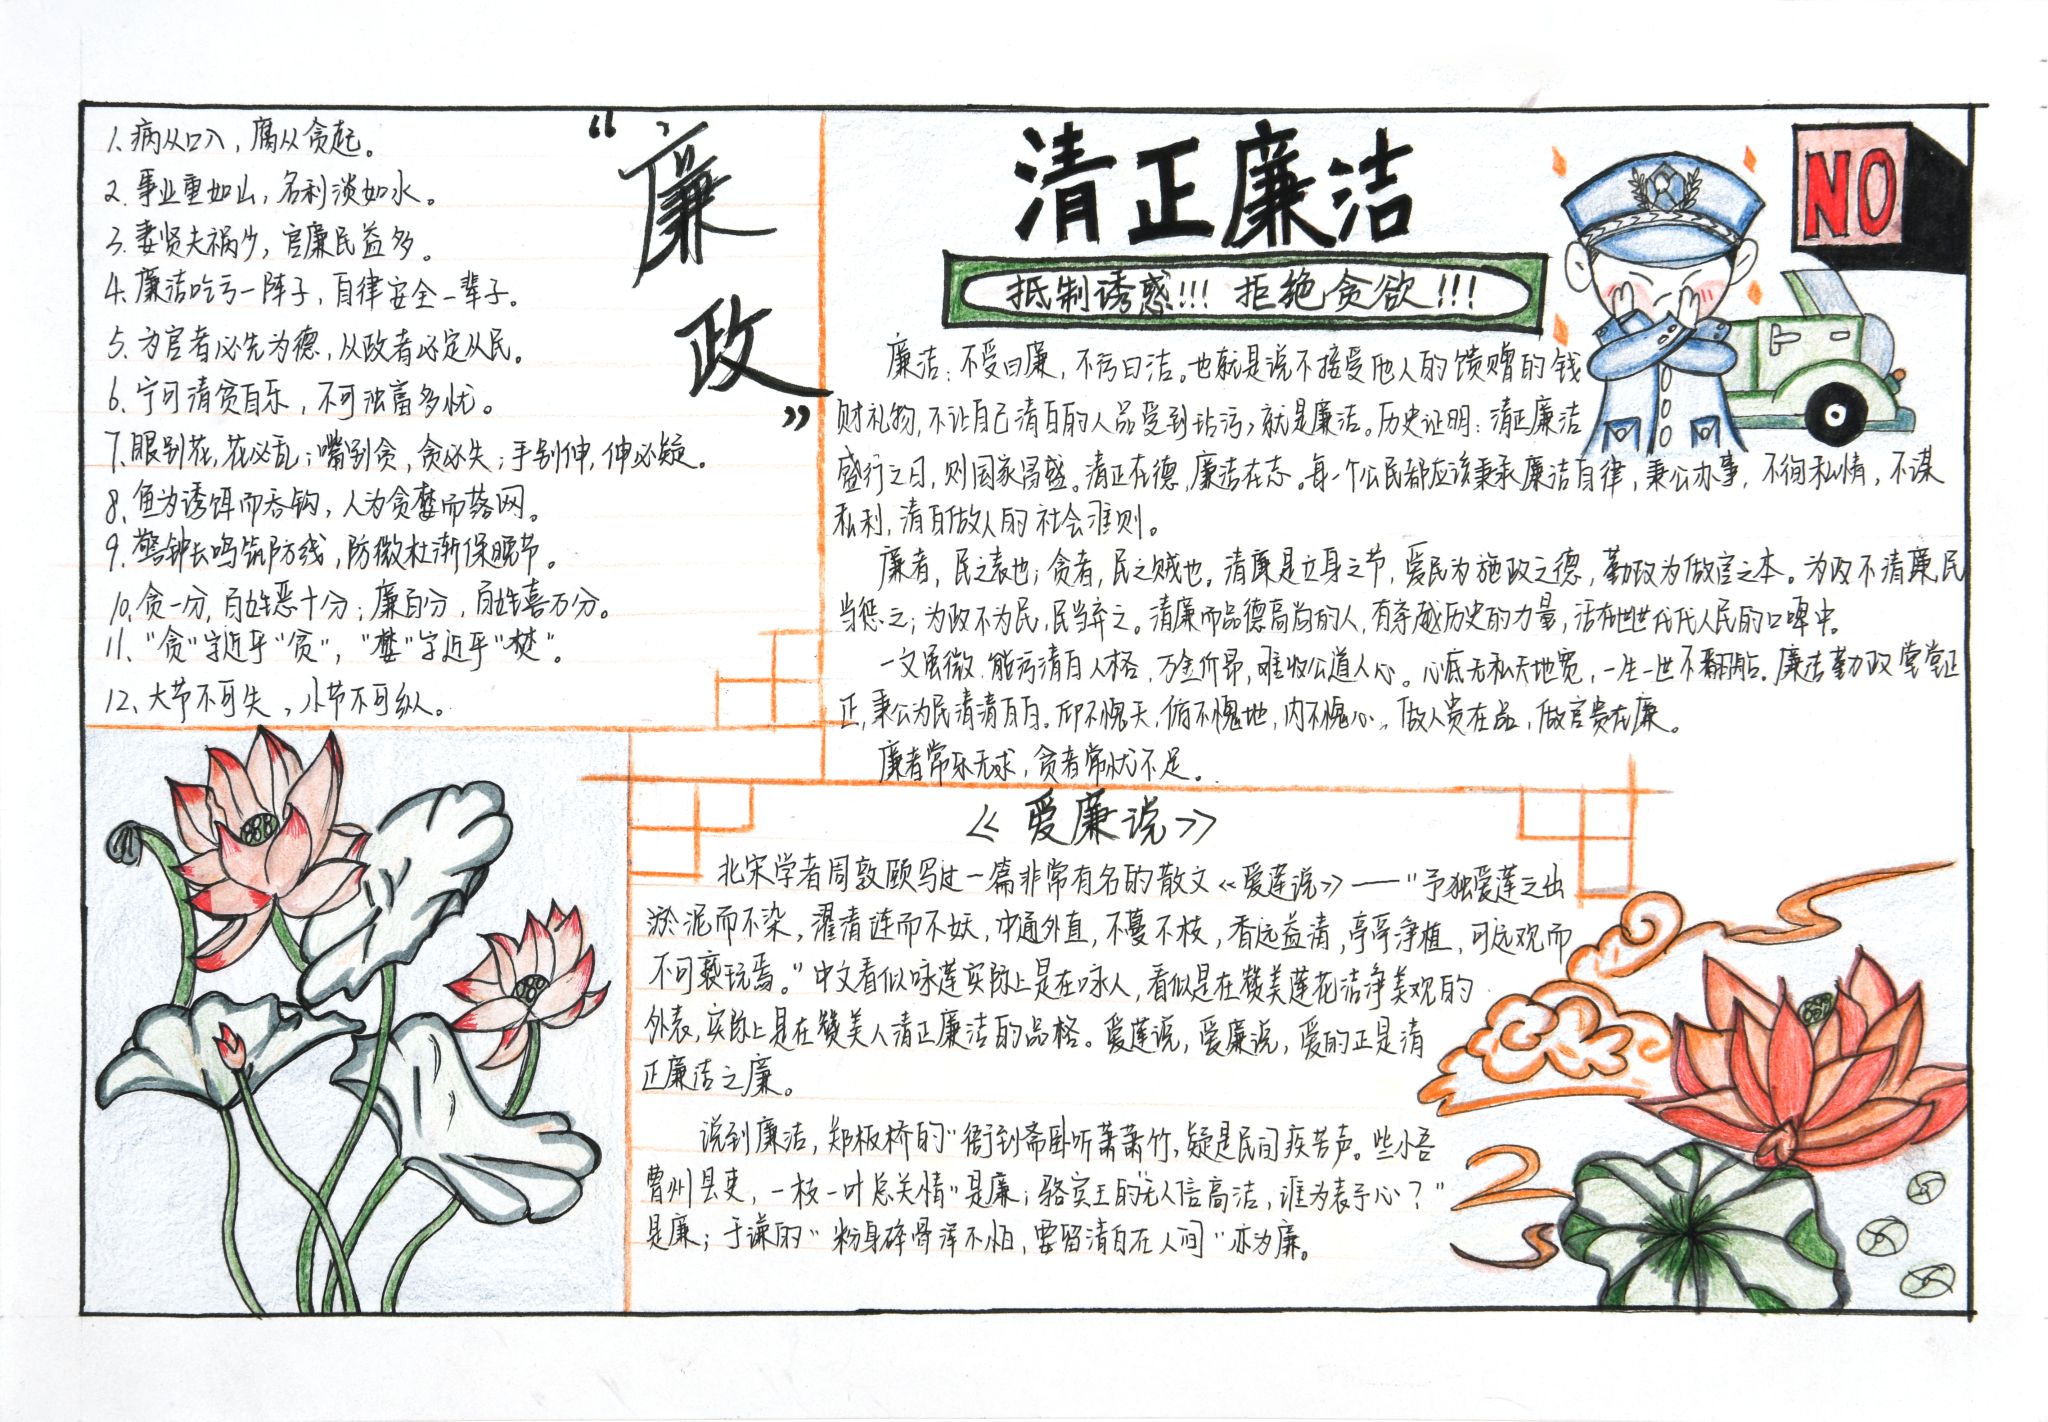 1、病从口入，腐从贪起。
2、事业重如山，名利淡如水。
3、妻贤夫祸少，官廉民益多。
4、廉洁吃亏一阵子，自律安全一辈子。
5、为官者必先为德，从政者必定从民。
6、宁可清贫自乐，不可浊富多忧。
7、眼别花，花必乱；嘴别贪，贪必失；手别伸，伸必疑。
8、鱼为诱饵而吞钩，人为贪婪而落网。
9、警钟长鸣筑防线，防微杜渐保晚节。
10、贪一分，百姓恶十分；廉百分，百姓喜万分。
11、"贪"字近乎"贫"，"婪"字近乎"焚"。
12、大节不可失，小节不可纵。
"廉
政"
清正廉洁
抵制诱惑!!! 拒绝贪欲!!!
NO
廉洁：不受曰廉，不污曰洁。也就是说不接受他人的馈赠的钱
财礼物，不让自己清白的人品受到玷污，就是廉洁。历史证明：清正廉洁
盛行之日，则国家昌盛。清正在德，廉洁在志。每一个公民都应该秉承廉洁自律，秉公办事，不徇私情，不谋
私利，清白做人的社会准则。
廉者，民之表也；贪者，民之贼也。清廉是立身之节，爱民为施政之德，勤政为做官之本。为政不清廉民
当惩之；为政不为民，民当弃之。清廉而品德高尚的人，有穿越历史的力量，活在世世代代人民的口碑中。
一文虽微，能污清白人格，万金价昂，难收公道人心。心底无私天地宽，一生一世不翻船。廉洁勤政堂堂正
正，秉公为民清清白白。仰不愧天，俯不愧地，内不愧心。做人贵在品，做官贵在廉。
廉者常乐无求，贪者常忧不足。
《爱廉说》
北宋学者周敦颐写过一篇非常有名的散文《爱莲说》——"予独爱莲之出
淤泥而不染，濯清涟而不妖，中通外直，不蔓不枝，香远益清，亭亭净植，可远观而
不可亵玩焉。"中文看似咏莲实际上是在咏人，看似是在赞美莲花洁净美观的
外表，实际上是在赞美人清正廉洁的品格。爱莲说，爱廉说，爱的正是清
正廉洁之廉。
说到廉洁，郑板桥的"衙到斋卧听萧萧竹，疑是民间疾苦声。些小吾
曹州县吏，一枝一叶总关情"是廉；骆宾王的"无人信高洁，谁为表予心？"
是廉；于谦的"粉身碎骨浑不怕，要留清白在人间"亦为廉。